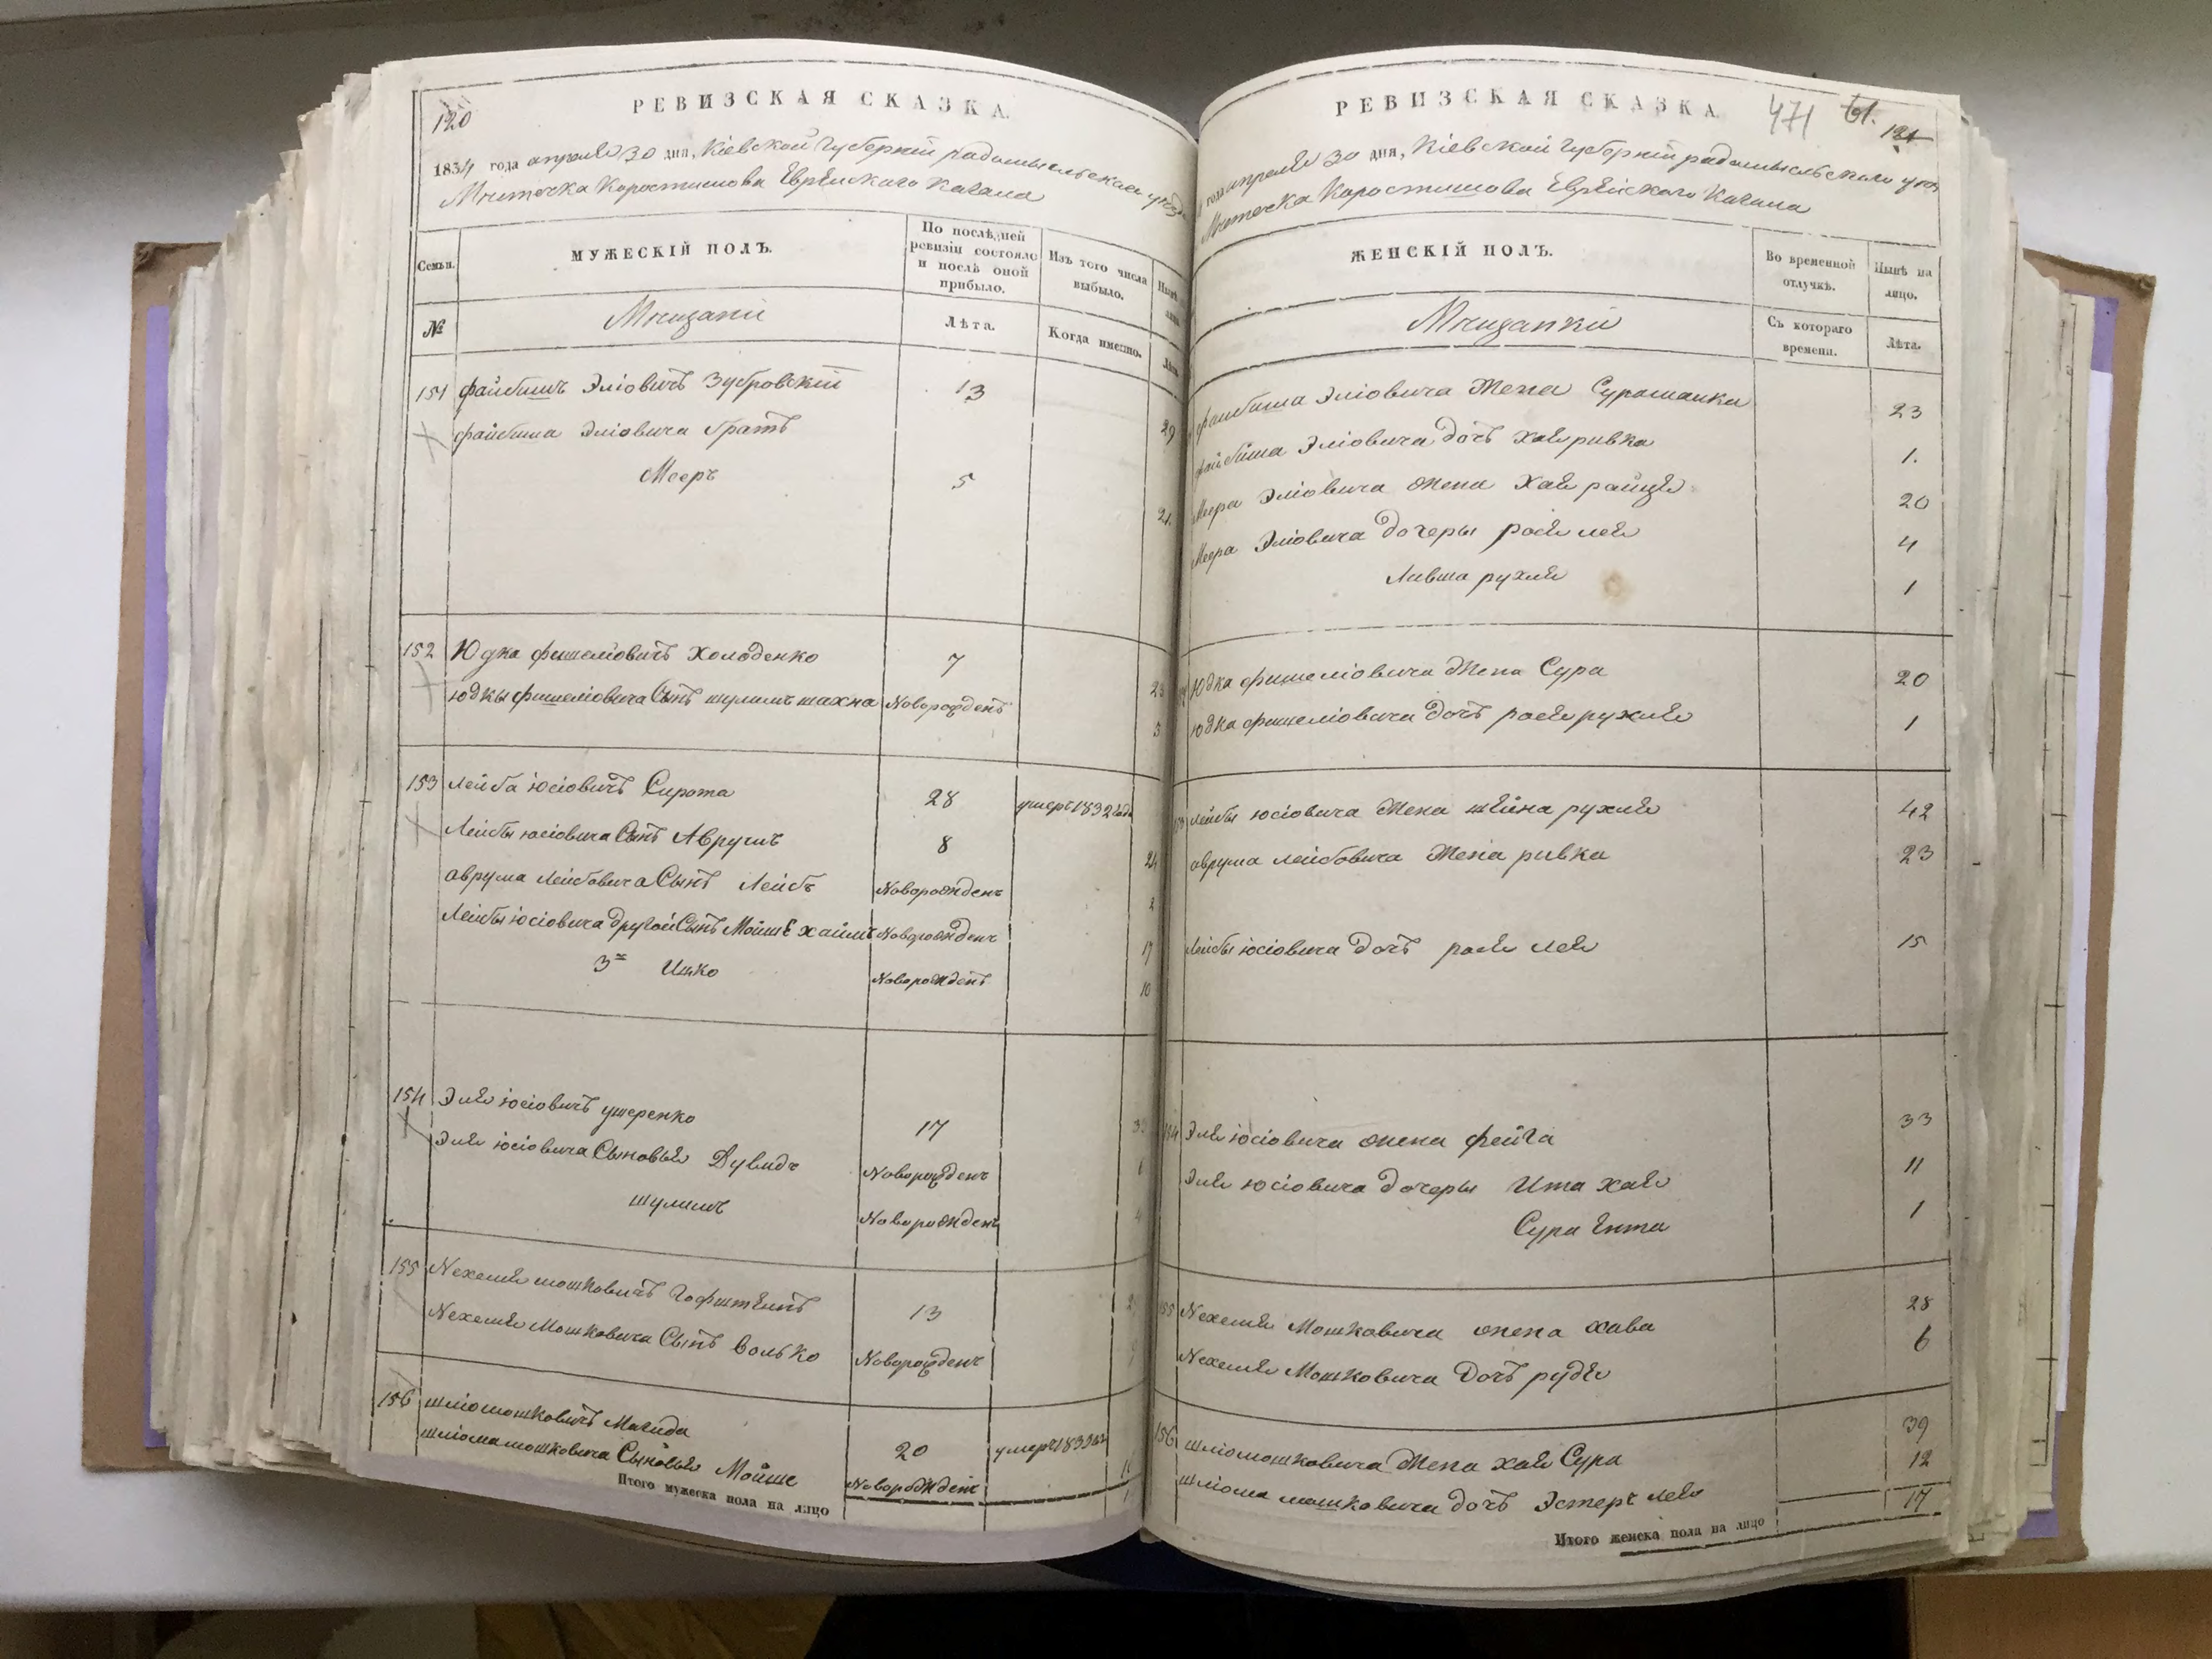 120
РЕВИЗСКАЯ СКАЗКА.
1834 года апреля 30 дня, Кіевской Губерніи радомысльскаго уезда
Мѣстечка Коростишова Еврейскаго Кагала
Семьи.
МУЖЕСКІЙ ПОЛЪ.
По послѣдней ревизіи состояло и послѣ оной прибыло.
Изъ того числа выбыло.
№
Мещане
Лѣта.
Когда именно.
151 файбишъ Эліовичъ Зубровскій 13 29
файбиша Эліовича братъ
Мееръ 5 21
152 Юдка фишеліовичъ Холоденко 7 23
юдки фишеліовича Сынъ шулимъ шахна Новорожденъ 3
153 Лейба юсіовичъ Сирота 28 умеръ 1832 года
Лейбы юсіовича Сынъ Аврумъ 8 24
аврума Лейбовича Сынъ Лейбъ Новорожденъ 2
Лейбы юсіовича другой Сынъ Мойше хаимъ Новорожденъ 17
3й Ицко Новорожденъ 10
154 Эле юсіовичъ ушеренко 17 33
Эле юсіовича Сыновья Дувидъ Новорожденъ 6
шулимъ Новорожденъ 4
155 Нехеме мошковичъ Гофштеинъ 13
Нехеме Мошковича Сынъ Волько Новорожденъ
156 шліомошковичъ Магида 20 умеръ 1833
шліома мошковича Сыновья Мойше Новорожденъ
Итого мужеска пола на лицо
РЕВИЗСКАЯ СКАЗКА.
471 61. 121
года апреля 30 дня, Кіевской Губерніи радомысльскаго уезд
Мѣстечка Коростишова Еврейскаго Кагала
ЖЕНСКІЙ ПОЛЪ.
Во временной отлучкѣ.
Нынѣ на лицо.
Мещанки
Съ котораго времени.
Лѣта.
файбиша Эліовича Жена Сурашанки 23
файбиша Эліовича дочъ хае ривка 1.
Меера Эліовича жена Хае райце 20
Меера Эліовича дочеры рося лея 4
Ливша рухля 1
Юдка фишеліовича Жена Сура 20
юдка фишеліовича дочъ рося рухля 1
Лейбы юсіовича Жена шейна рухля 42
аврума Лейбовича Жена ривка 23
Лейбы юсіовича дочъ рося лея 15
154 Эле юсіовича жена фейга 33
Эле юсіовича дочеры Ита хая 11
Сура Ента 1
155 Нехеме Мошковича жена хава 28
Нехеме Мошковича Дочъ рудя 6
156 шліомошковича Жена хая Сура 39
шліома мошковича дочъ Эстеръ лея 12
Итого женска пола на лицо 17